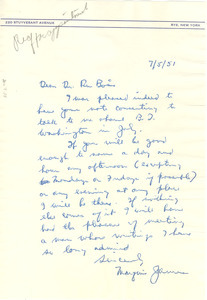 220 STUYVESANT AVENUE
RYE, NEW YORK
7/5/51
Dear Dr. Du Bois
I was pleased indeed to
have your note consenting to
talk to us about B.T.
Washington in July.
If you will be good
enough to name a day and
hour any afternoon (excepting
Mondays or Fridays if possible)
or any evening at any place
I will be there. If nothing
else comes of it I will have
had the pleasure of meeting
a man whose writings I have
so long admired
Sincerely